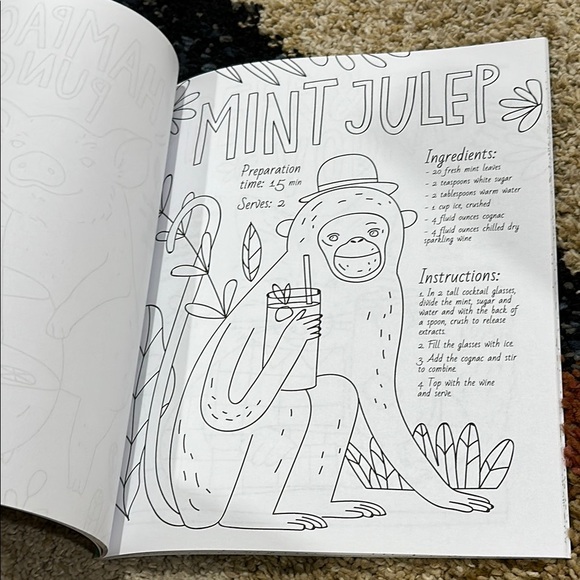 MINT JULEP
Preparation
time: 15 min
Serves: 2
Ingredients:
- 20 fresh mint leaves
- 2 teaspoons white sugar
- 2 tablespoons warm water
- 1 cup ice, crushed
- 4 fluid ounces cognac
- 4 fluid ounces chilled dry
sparkling wine
Instructions:
1. In 2 tall cocktail glasses,
divide the mint, sugar and
water and with the back of
a spoon, crush to release
extracts.
2. Fill the glasses with ice.
3. Add the cognac and stir
to combine.
4. Top with the wine
and serve.